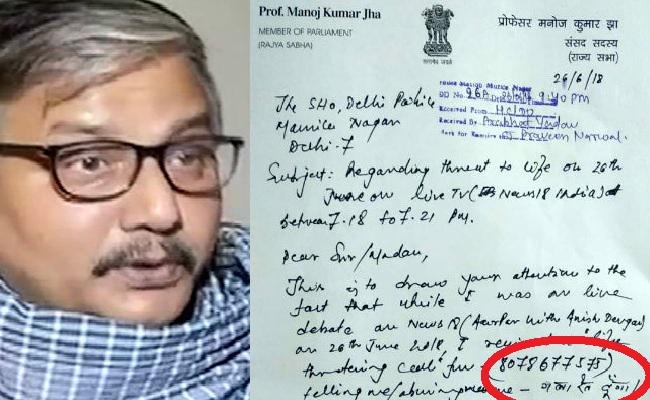 Prof. Manoj Kumar Jha
MEMBER OF PARLIAMENT
(RAJYA SABHA)
सत्यमेव जयते
प्रोफेसर मनोज कुमार झा
संसद सदस्य
(राज्य सभा)
26/6/18
The SHO, Delhi Police
Maurice Nagar
Delhi-7
DD No. 9:40 PM
Received From
Received By
Subject: Regarding threat to life on 26th
June on live TV (News18 India) at
between 7.18 to 7.21 PM.
Dear Sir/Madam,
This is to draw your attention to the
fact that while I was on live
debate on News18 (Aar Par with Amish Devgan)
on 26th June 2018, I
threatening
(8078677575)
telling me/abusing me –